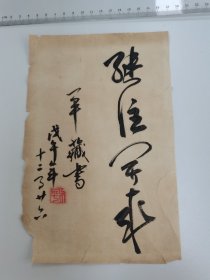 继往开来
军藏书
戊午年
十二月廿六